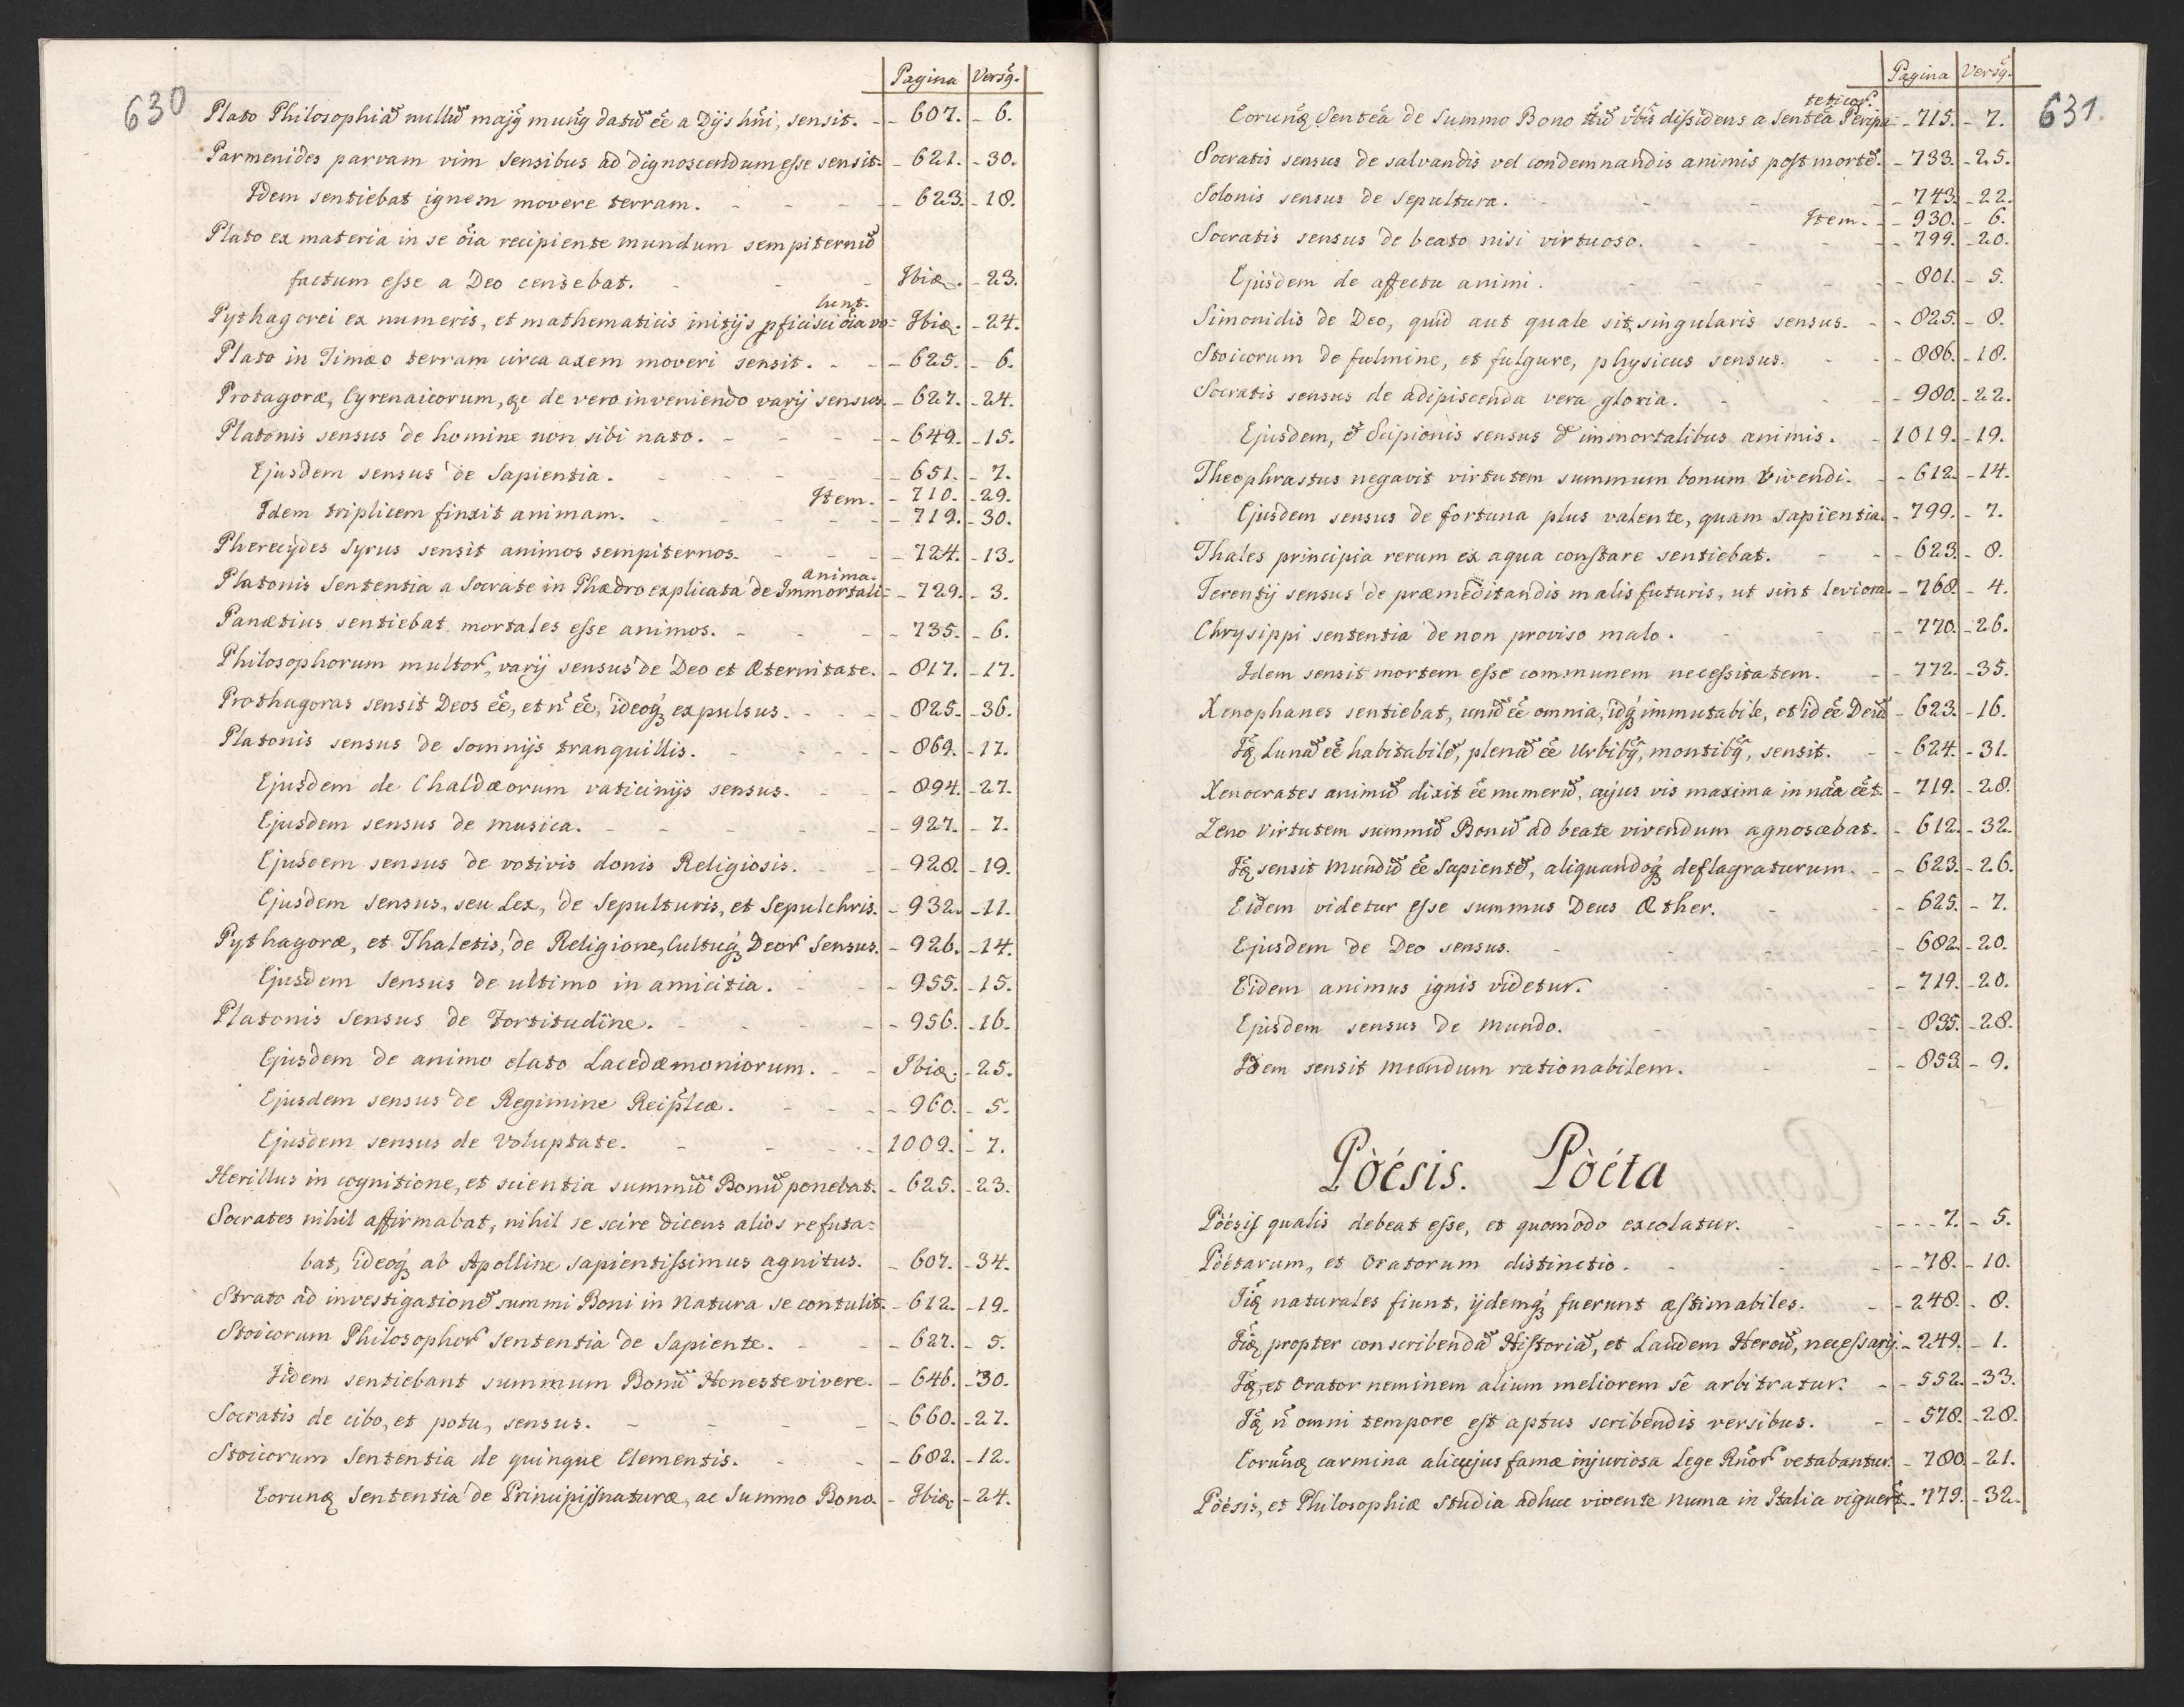 630
Pagina Versꝯ.
Plato Philosophiã nullũ majꝯ munꝯ datũ ẽe a Dijs hñi, sensit. - 607. - 6.
Parmenides parvam vim sensibus ad dignoscendum esse sensit. - 621. - 30.
Idem sentiebat ignem movere terram. - 623. - 18.
Plato ex materia in se õia recipiente mundum sempiternũ
factum esse a Deo censebat. - Ibiđ. - 23.
lunt.
Pythagorei ex numeris, et mathematicis initijs pficisci õia vo= Ibiđ. - 24.
Plato in Timæo terram circa axem moveri sensit. - 625. - 6.
Protagoræ, Cyrenaicorum, &c de vero inveniendo varij sensus. - 627. - 24.
Platonis sensus de homine non sibi nato. - 649. - 15.
Ejusdem sensus de Sapientia. - 651. - 7.
Item. - 710. - 29.
Idem triplicem finxit animam. - 719. - 30.
Pherecÿdes Syrus sensit animos sempiternos. - 724. - 13.
anima.
Platonis Sententia a Socrate in Phædro explicata de Immortali= - 729. - 3.
Panætius sentiebat mortales esse animos. - 735. - 6.
Philosophorum multoꝝ, varij sensus de Deo et Æternitate. - 817. - 17.
Prothagoras sensit Deos ẽe, et ñ ẽe, ideoq́ꝫ expulsus. - 825. - 36.
Platonis sensus de somnijs tranquillis. - 869. - 17.
Ejusdem de Chaldæorum vaticinijs sensus. - 894. - 27.
Ejusdem sensus de musica. - 927. - 7.
Ejusdem sensus de votivis donis Religiosis. - 928. - 19.
Ejusdem sensus, seu Lex, de Sepulturis, et Sepulchris. - 932. - 11.
Pythagoræ, et Thaletis, de Religione, Cultuq́ꝫ Deoꝝ Sensus. - 926. - 14.
Ejusdem Sensus de ultimo in amicitia. - 955. - 15.
Platonis Sensus de Fortitudine. - 956. - 16.
Ejusdem de animo elato Lacedæmoniorum. - Ibiđ. - 25.
Ejusdem sensus de Regimine Reip̃lcæ. - 960. - 5.
Ejusdem sensus de Voluptate. - 1009. - 7.
Herillus in cognitione, et scientia summũ Bonũ ponebat. - 625. - 23.
Socrates nihil affirmabat, nihil se scire dicens alios refuta=
bat, ideoq́ꝫ ab Apolline sapientissimus agnitus. - 607. - 34.
Strato ad investigationẽ summi Boni in Natura se contulit. - 612. - 19.
Stoicorum Philosophoꝝ Sententia de Sapiente. - 627. - 5.
Iidem sentiebant summum Bonũ Honeste vivere. - 646. - 30.
Socratis de cibo, et potu, sensus. - 660. - 27.
Stoicorum Sententia de quinque Elementis. - 682. - 12.
Eorunđ Sententia de Principijs naturæ, ac Summo Bono. - Ibiđ - 24.
631.
Pagina Versꝯ.
teticoꝝ.
Eorunđ Sentẽa de Summo Bono tñũ ṽbis dissidens a Sentẽa Peripa= - 715. - 7.
Socratis sensus de salvandis vel condemnandis animis post mortẽ. - 733. - 25.
Solonis sensus de Sepultura. - 743. - 22.
Item. - 930. - 6.
Socratis sensus de beato nisi virtuoso. - 799. - 20.
Ejusdem de affectu animi. - 801. - 5.
Simonidis de Deo, quid aut quale sit, singularis sensus. - 825. - 8.
Stoicorum de fulmine, et fulgure, physicus sensus. - 886. - 18.
Socratis sensus de adipiscenda vera gloria. - 980. - 22.
Ejusdem, & Scipionis sensus đ immortalibus animis. - 1019. - 19.
Theophrastus negavit virtutem summum bonum Vivendi. - 612. - 14.
Ejusdem sensus de fortuna plus valente, quam sapientia. - 799. - 7.
Thales principia rerum ex aqua constare sentiebat. - 623. - 8.
Terentij sensus de præmeditandis malis futuris, ut sint leviora. - 768. - 4.
Chrysippi sententia de non proviso malo. - 770. - 26.
Idem sensit mortem esse communem necessitatem. - 772. - 35.
Xenophanes sentiebat, unũ ẽe omnia, idq́ꝫ immutabile, et id ẽe Deũ - 623. - 16.
Iđ, Lunã ẽe habitabilẽ, plenã ẽe Urbibꝯ, montibꝯ, sensit. - 624. - 31.
Xenocrates animũ dixit ẽe numerũ, cujus vis maxima in nãa ẽet. - 719. - 28.
Zeno Virtutem summũ Bonũ ad beate vivendum agnoscebat. - 612. - 32.
Iđ sensit Mundũ ẽe Sapientẽ, aliquandoq́ꝫ deflagraturum. - 623. - 26.
Eidem videtur esse summus Deus Æther. - 625. - 7.
Ejusdem de Deo sensus. - 682. - 20.
Eidem animus ignis videtur. - 719. - 20.
Ejusdem sensus de Mundo. - 835. - 28.
Idem sensit Mundum rationabilem. - 853. - 9.
Pòésis. Pòéta
Pòésis qualis debeat esse, et quomodo excolatur. - 7. - 5.
Pòétarum, et Oratorum distinctio. - 78. - 10.
Iiđ naturales fiunt, ijdemq́ꝫ fuerunt æstimabiles. - 248. - 8.
Iiđ propter conscribendã Historiã, et Laudem Heroũ, necessarij. - 249. - 1.
Iđ, et Orator neminem alium meliorem sẽ arbitratur. - 552. - 33.
Iđ ñ omni tempore est aptus scribendis versibus. - 578. - 28.
Eorunđ carmina alicujus famæ injuriosa Lege Rñoꝝ vetabantur. - 780. - 21.
Pòésis, et Philosophiæ studia adhuc vivente Numa in Italia viguert̃. - 779. - 32.